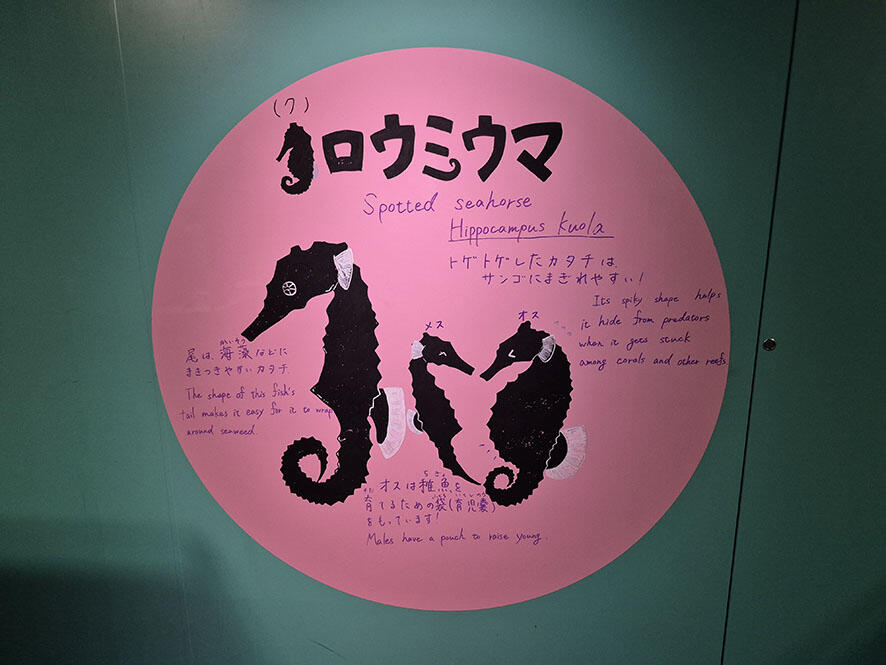 (ク)
ロウミウマ
Spotted seahorse
Hippocampus kuola
トゲトゲしたカタチは、
サンゴにまぎれやすい!
Its spiky shape helps
it hide from predators
when it gets stuck
among corals and other reefs.
メス
オス
かいそう
尾は、海藻などに
まきつきやすいカタチ.
The shape of this fish's
tail makes it easy for it to wrap
around seaweed.
ちぎょ
オスは稚魚を
そだ ふくろ いくじのう
育てるための袋(育児嚢)
をもっています!
Males have a pouch to raise young.